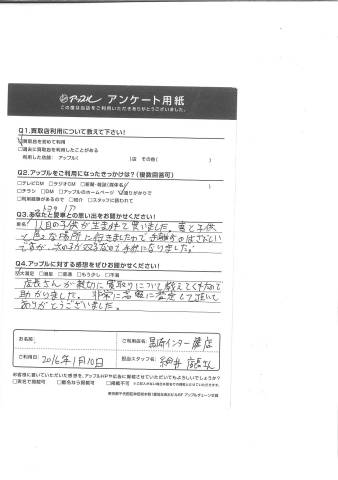 アップル アンケート用紙
この度は当店をご利用いただきありがとうございました。
Q1.買取店利用について教えて下さい!
買取店を初めて利用
過去に買取店を利用したことがある
利用した店舗: アップル( )店 その他( )
Q2.アップルをご利用になったきっかけは?(複数回答可)
□テレビCM □ラジオCM □新聞・雑誌(媒体名 )
□チラシ □DM □アップルのホームページ 通りがかりで
□利用経験があるので □紹介 □スタッフに誘われて
Q3.あなたと愛車との思い出をお聞かせください!
車名( )
1人目の子供が生まれて買いました。妻と子供
と色々な場所に行きましたので手離すのはさみしい
ですが、次の子が
Q4.アップルに対する感想をぜひお聞かせください!
大満足 □満足 □普通 □もう少し □不満
店長さんが親切に買取りについて教えてくれたので
助かりました。非常に高額に査定して頂いて
ありがとうございました。
お名前
ご利用店名 黒崎インター店
ご利用日 2016年1月10日
担当スタッフ名 細井 店長
お客様に書いていただいた感想を、アップルHPや広告に掲載させていただいてもよろしいでしょうか?
□実名で掲載可 □匿名なら掲載可 □掲載不可